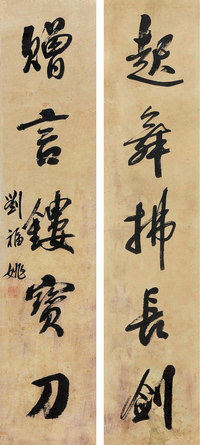 起舞拂長劍
贈言鏤寶刀
劉福姚